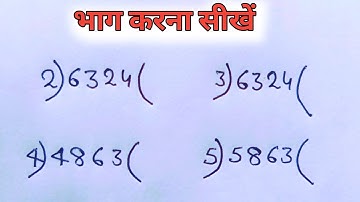 भाग करना सीखें
2)6324( 3)6324(
4)4863( 5)5863(